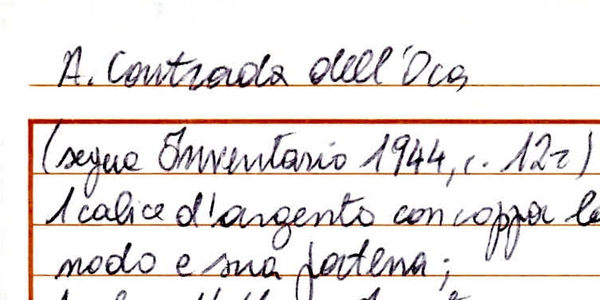 A. Contrada dell'Oca
(segue Inventario 1944, c. 12r)
1 calice d'argento con coppa
nodo e sua patena;